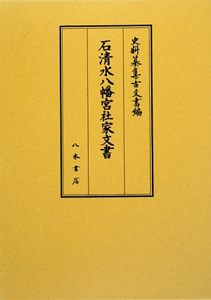 史料纂集古文書編
石清水八幡宮社家文書
八木書店